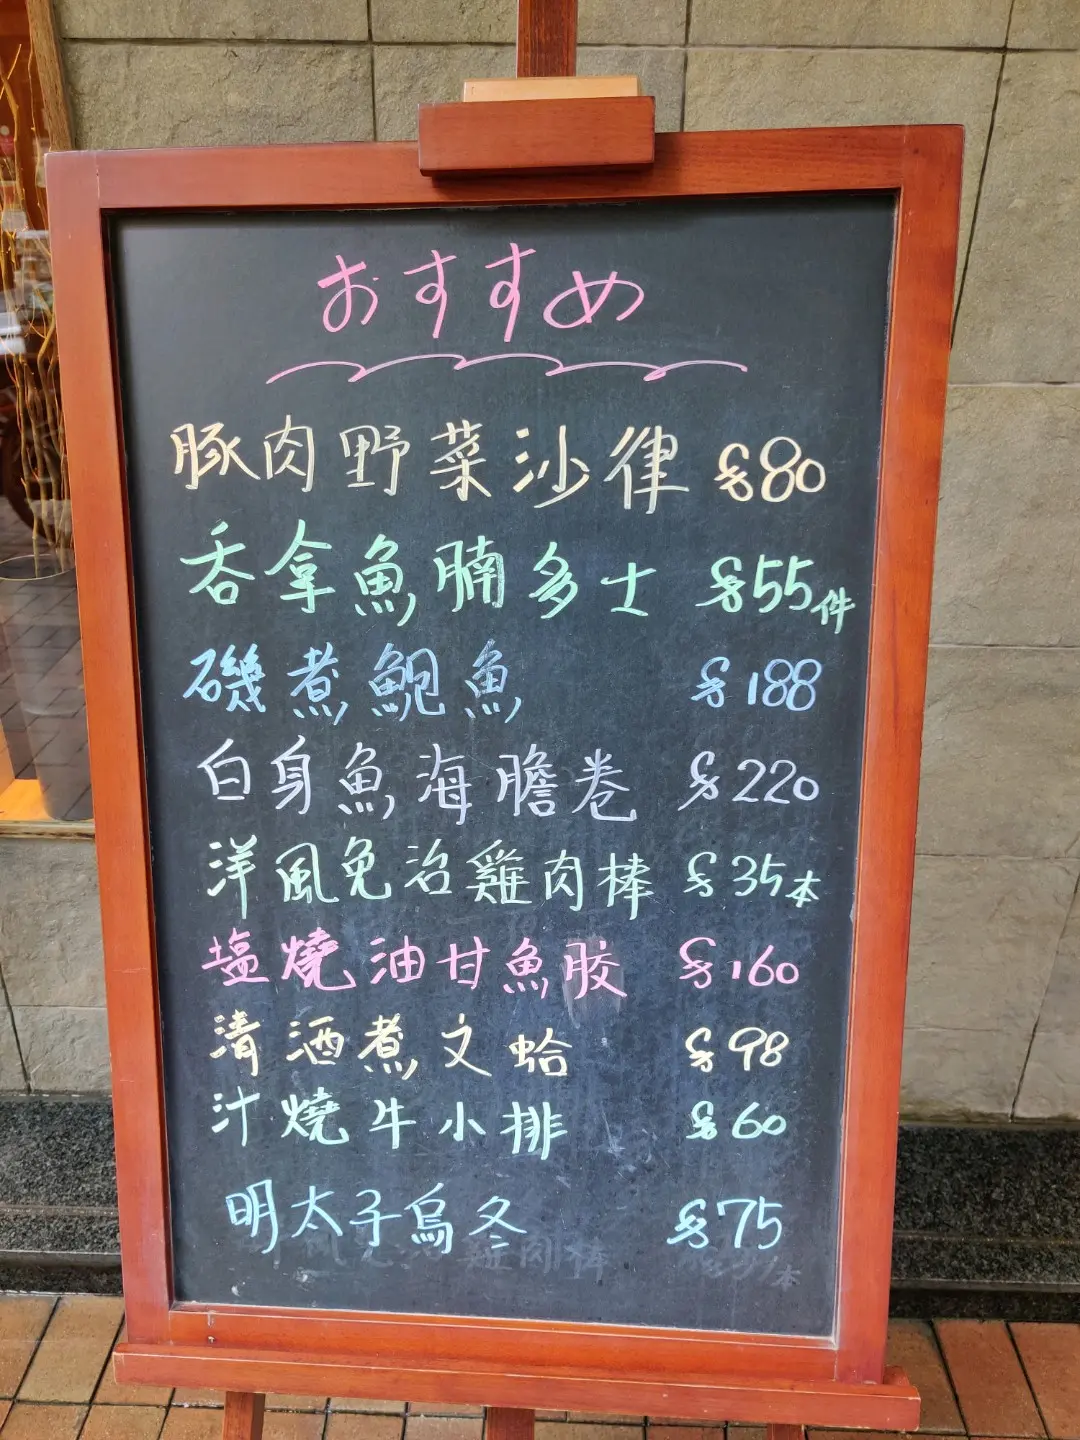 おすすめ
豚肉野菜沙律 $80
吞拿魚腩多士 $55件
磯煮鮑魚 $188
白身魚海膽卷 $220
洋風免治雞肉棒 $35本
塩燒油甘魚胶 $160
清酒煮文蛤 $98
汁燒牛小排 $60
明太子烏冬 $75
雞肉棒
本